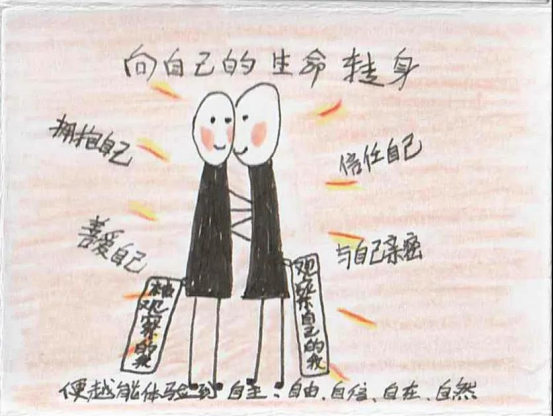 向自己的生命转身
拥抱自己
信任自己
善爱自己
与自己亲密
被观察的我
观察自己的我
便越能体验到自主、自由、自信、自在、自然